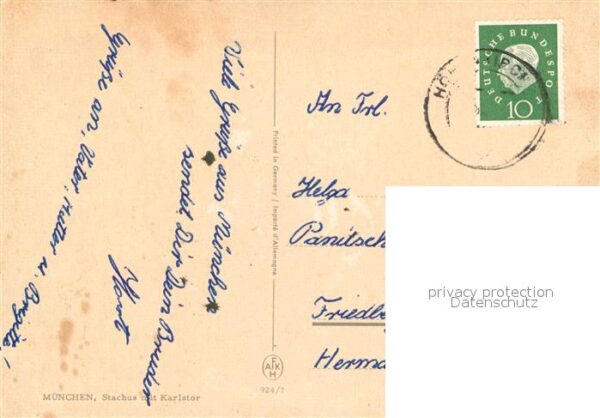 Viele Grüße aus München
sendet Dir Dein Bruder
Horst
Grüße an, Vater, Mutter u. Brigitte!
MÜNCHEN, Stachus mit Karlstor
Printed in Germany / Importé d'Allemagne
AFKH
924/7
DEUTSCHE BUNDESPOST
10
An Frl.
Helga
Panitsch
Friedbe
Herma
privacy protection
Datenschutz